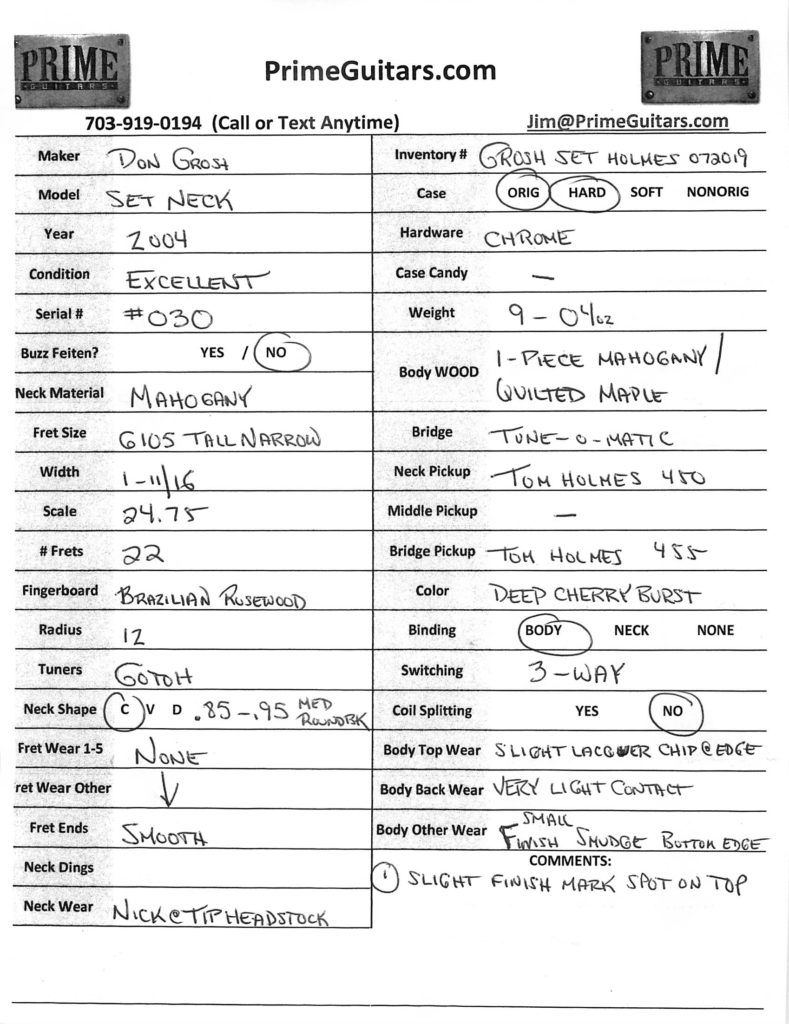 PRIME
GUITARS
PrimeGuitars.com
PRIME
GUITARS
703-919-0194 (Call or Text Anytime)
Jim@PrimeGuitars.com
Maker DON GROSH
Model SET NECK
Year 2004
Condition EXCELLENT
Serial # #030
Buzz Feiten? YES / NO
Neck Material MAHOGANY
Fret Size 6105 TALL NARROW
Width 1-11/16
Scale 24.75
# Frets 22
Fingerboard BRAZILIAN ROSEWOOD
Radius 12
Tuners GOTOH
Neck Shape C V D .85-.95 MED
ROUNDBK
Fret Wear 1-5 NONE
ret Wear Other ↓
Fret Ends SMOOTH
Neck Dings
Neck Wear NICK @ TIP HEADSTOCK
Inventory # GROSH SET HOLMES 072019
Case ORIG HARD SOFT NONORIG
Hardware CHROME
Case Candy —
Weight 9-04oz
Body WOOD 1-PIECE MAHOGANY/
QUILTED MAPLE
Bridge TUNE-O-MATIC
Neck Pickup TOM HOLMES 450
Middle Pickup —
Bridge Pickup TOM HOLMES 455
Color DEEP CHERRY BURST
Binding BODY NECK NONE
Switching 3-WAY
Coil Splitting YES NO
Body Top Wear SLIGHT LACQUER CHIP @ EDGE
Body Back Wear VERY LIGHT CONTACT
Body Other Wear SMALL
FINISH SMUDGE BOTTOM EDGE
COMMENTS:
1 SLIGHT FINISH MARK SPOT ON TOP